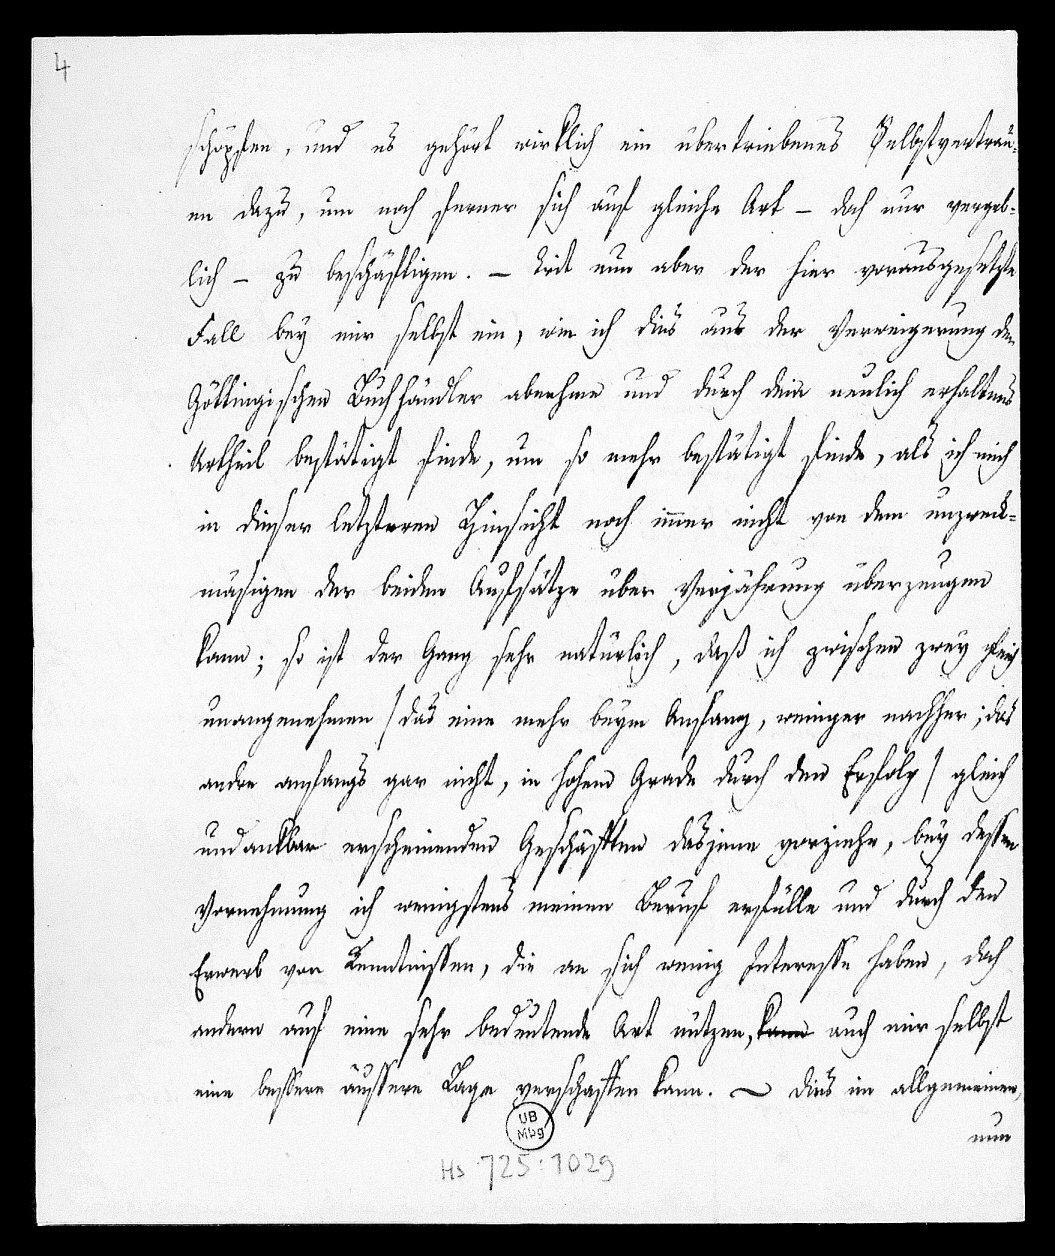 4
schöpften, und es gehört wirklich ein übertriebenes Selbstvertrau-
en dazu, um noch ferner sich auf gleiche Art – doch nur vergeb-
lich – zu beschäftigen. – Trit nun aber der hier vorausgesetzte
Fall bey mir selbst ein, wie ich dies aus der Verweigerung der
Göttingischen Buchhändler abnehme und durch dein neulich erhaltenes
Urtheil bestätigt finde, um so mehr bestätigt finde, als ich mich
in dieser letzteren Hinsicht noch immer nicht von dem unzweck-
mäsigen der beiden Aufsätze über Verjährung überzeugen
kann; so ist der Gang sehr natürlich, daß ich zwischen zwey gleich
unangenehmen / das eine mehr beym Anfang, weniger nachher; das
andre anfangs gar nicht, in hohem Grade durch den Erfolg / gleich
undankbar erscheinenden Geschäfften dasjene vorziehe, bey dessen
Vornehmung ich wenigstens meinen Beruf erfülle und durch den
Erwerb von Kenntnissen, die an sich wenig Interesse haben, doch
andern auf eine sehr bedeutende Art nützen, kann auch mir selbst
eine bessere äussere Lage verschaffen kann. – Dies im allgemeinen,
nun
UB
Mbg
Hs 725:1029